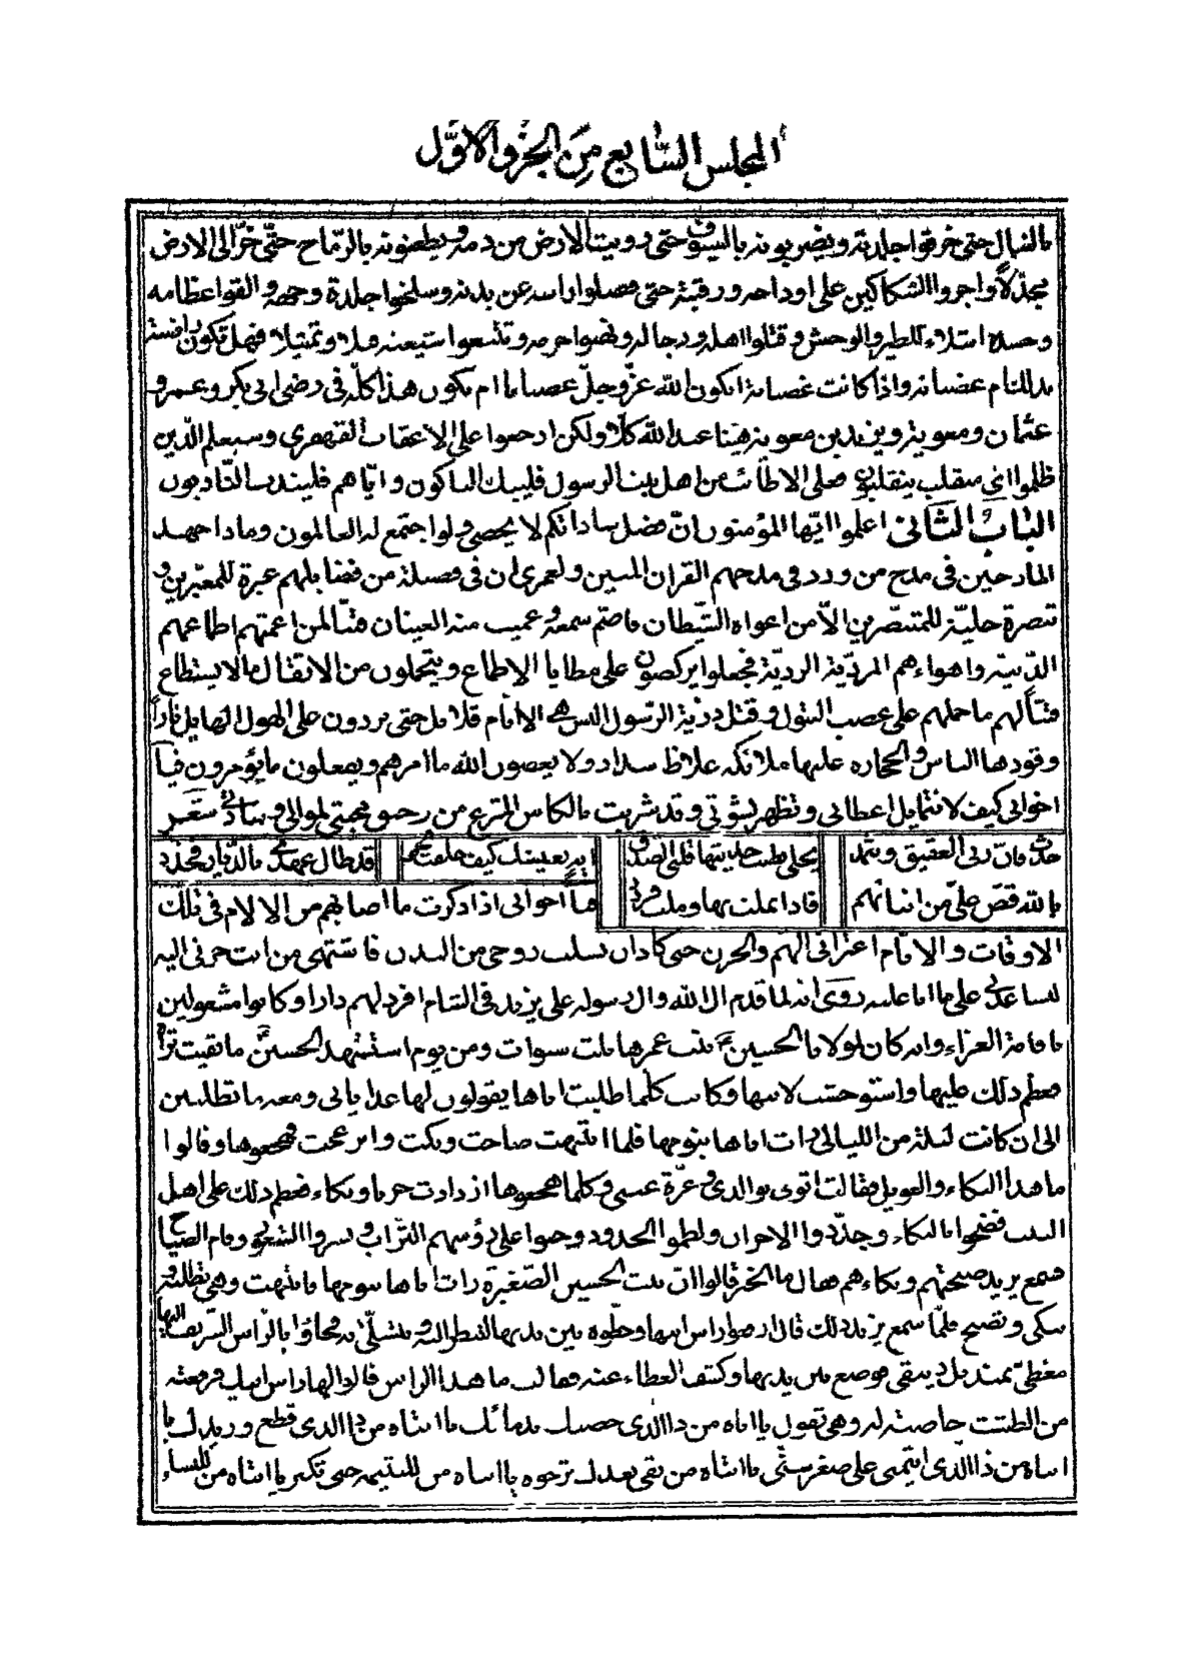 المجلس السابع من الجزؤ الاول
بالنبال حتى خرقوا جلدته ويضربونه بالسيوف حتى رويت الارض من دمه ويطعنونه بالرماح حتى خر الى الارض
مجدلا واجروا السكاكين على اوداجه ورقبته حتى فصلوا راسه عن بدنه وسلخوا جلدة وجهه والقوا عظامه
وجسده للطير والوحش وقتلوا اهله ورجاله
واذا كانت غضبانة ايكون الله عز وجل غضبانا ام يكون هذا كله في رضى ابى بكر وعمر و
عثمان ومعوية ويزيد بن معوية كلا ولكن ارجعوا على الاعقاب القهقرى وسيعلم الذين
ظلموا اى منقلب ينقلبون فعلى الاطائب من اهل بيت الرسول فليبك الباكون واياهم فليندب النادبون
الباب الثانى اعلموا ايها المؤمنون ان فضل ساداتكم لا يحصى ولو اجتمع له العالمون وماذا جهد
المادحين فى مدح من ورد فى مدحهم القران المبين ولعمرى ان فى فضيلة من فضايلهم عبرة للمعتبرين و
تبصرة جلية للمتبصرين الا من اغواه الشيطان فاصم سمعه وعميت منه العينان فتبا لمن اعمتهم اطماعهم
الدنية واهواءهم المردية الردية فجعلوا يركضون على مطايا الاطماع ويتحملون من الاثقال ما لا يستطاع
فتبا لهم ما حملهم على غصب البتول وقتل ذرية الرسول حتى يردون على الهول الهايل نارا
وقودها الناس والحجارة عليها ملائكة غلاظ شداد ولا يعصون الله ما امرهم ويفعلون ما يؤمرون فيا
اخوانى كيف لا تتمايل اعطافى وتظهر نشوتى وقد شربت بالكاس المترع من رحيق محبتى لموالى وساداتى شعر
حدث فان ربى العقيق وثمد يحلى بطيب حديثها قلبى الصدى قد طال عهدى بالديار فخذ
بالله قص على من انبائهم
ها اخوانى اذا ذكرت ما اصابهم من الالام فى تلك
الاوقات والايام اعترانى الهم والحزن حتى كاد ان يسلب روحى من البدن فاشتهى من ابث حزنى اليه
ليساعدنى على ما انا عليه روى انه لما قدم ال الله وال رسوله على يزيد فى الشام افرد لهم دارا وكانوا مشغولين
باقامة العزاء وانه كان لمولانا الحسين بنت عمرها ثلث سنوات ومن يوم استشهد الحسين ما بقيت تراه
فعظم ذلك عليها واستوحشت لابيها وكانت كلما طلبت اباها يقولون لها غدا ياتى ومعه ما تطلبين
الى ان كانت ليلة من الليالى رات اباها بنومها فلما انتبهت صاحت وبكت وانزعجت فهجعوها وقالوا
ما هذا البكاء والعويل فقالت اتونى بوالدى وقرة عينى وكلما هجعوها ازدادت حزنا وبكاء فعظم ذلك على اهل
البيت فضجوا بالبكاء وجددوا الاحزان ولطموا الخدود وحثوا على رؤسهم التراب ونشروا الشعور وقام الصياح
فسمع يزيد صيحتهم وبكاءهم فقال ما الخبر قالوا ان بنت الحسين الصغيرة رات اباها بنومها فانتبهت وهى تطلبه و
تبكى وتصيح فلما سمع يزيد ذلك قال ارفعوا راس ابيها وحطوه بين يديها لتنظر اليه وتتسلى به فجاؤا بالراس الشريف اليها
مغطى بمنديل ديبقى فوضع بين يديها وكشف الغطاء عنه فقالت ما هذا الراس قالوا لها راس ابيك فرفعته
من الطشت حاضنة له وهى تقول يا اباه من ذا الذى خضبك بدمائك يا ابتاه من ذا الذى قطع وريدك يا
ابتاه من ذا الذى ايتمنى على صغر سنى يا ابتاه من بقى بعدك نرجوه يا ابتاه من لليتيمة حتى تكبر يا ابتاه من للنساء